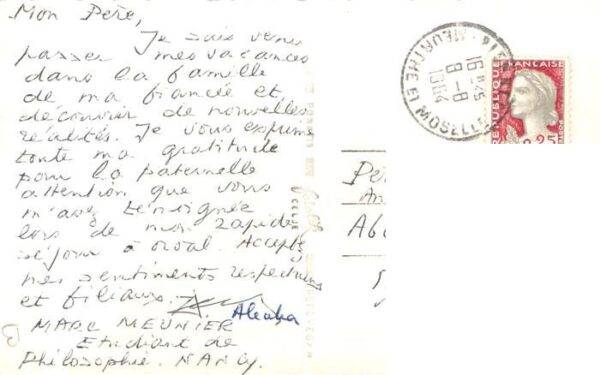 Mon Père,
Je suis venu
passer mes vacances
dans la famille
de ma fiancée et
découvrir de nouvelles
réalités. Je vous exprime
toute ma gratitude
pour la paternelle
attention que vous
m'avez témoignée
lors de mon rapide
séjour à Orval. Acceptez
mes sentiments respectueux
et filiaux.
MARC MEUNIER
Etudiant de
Philosophie. NANCY.
16H45
8-8
MEURTHE ET MOSELLE
REPUBLIQUE FRANCAISE
0.25